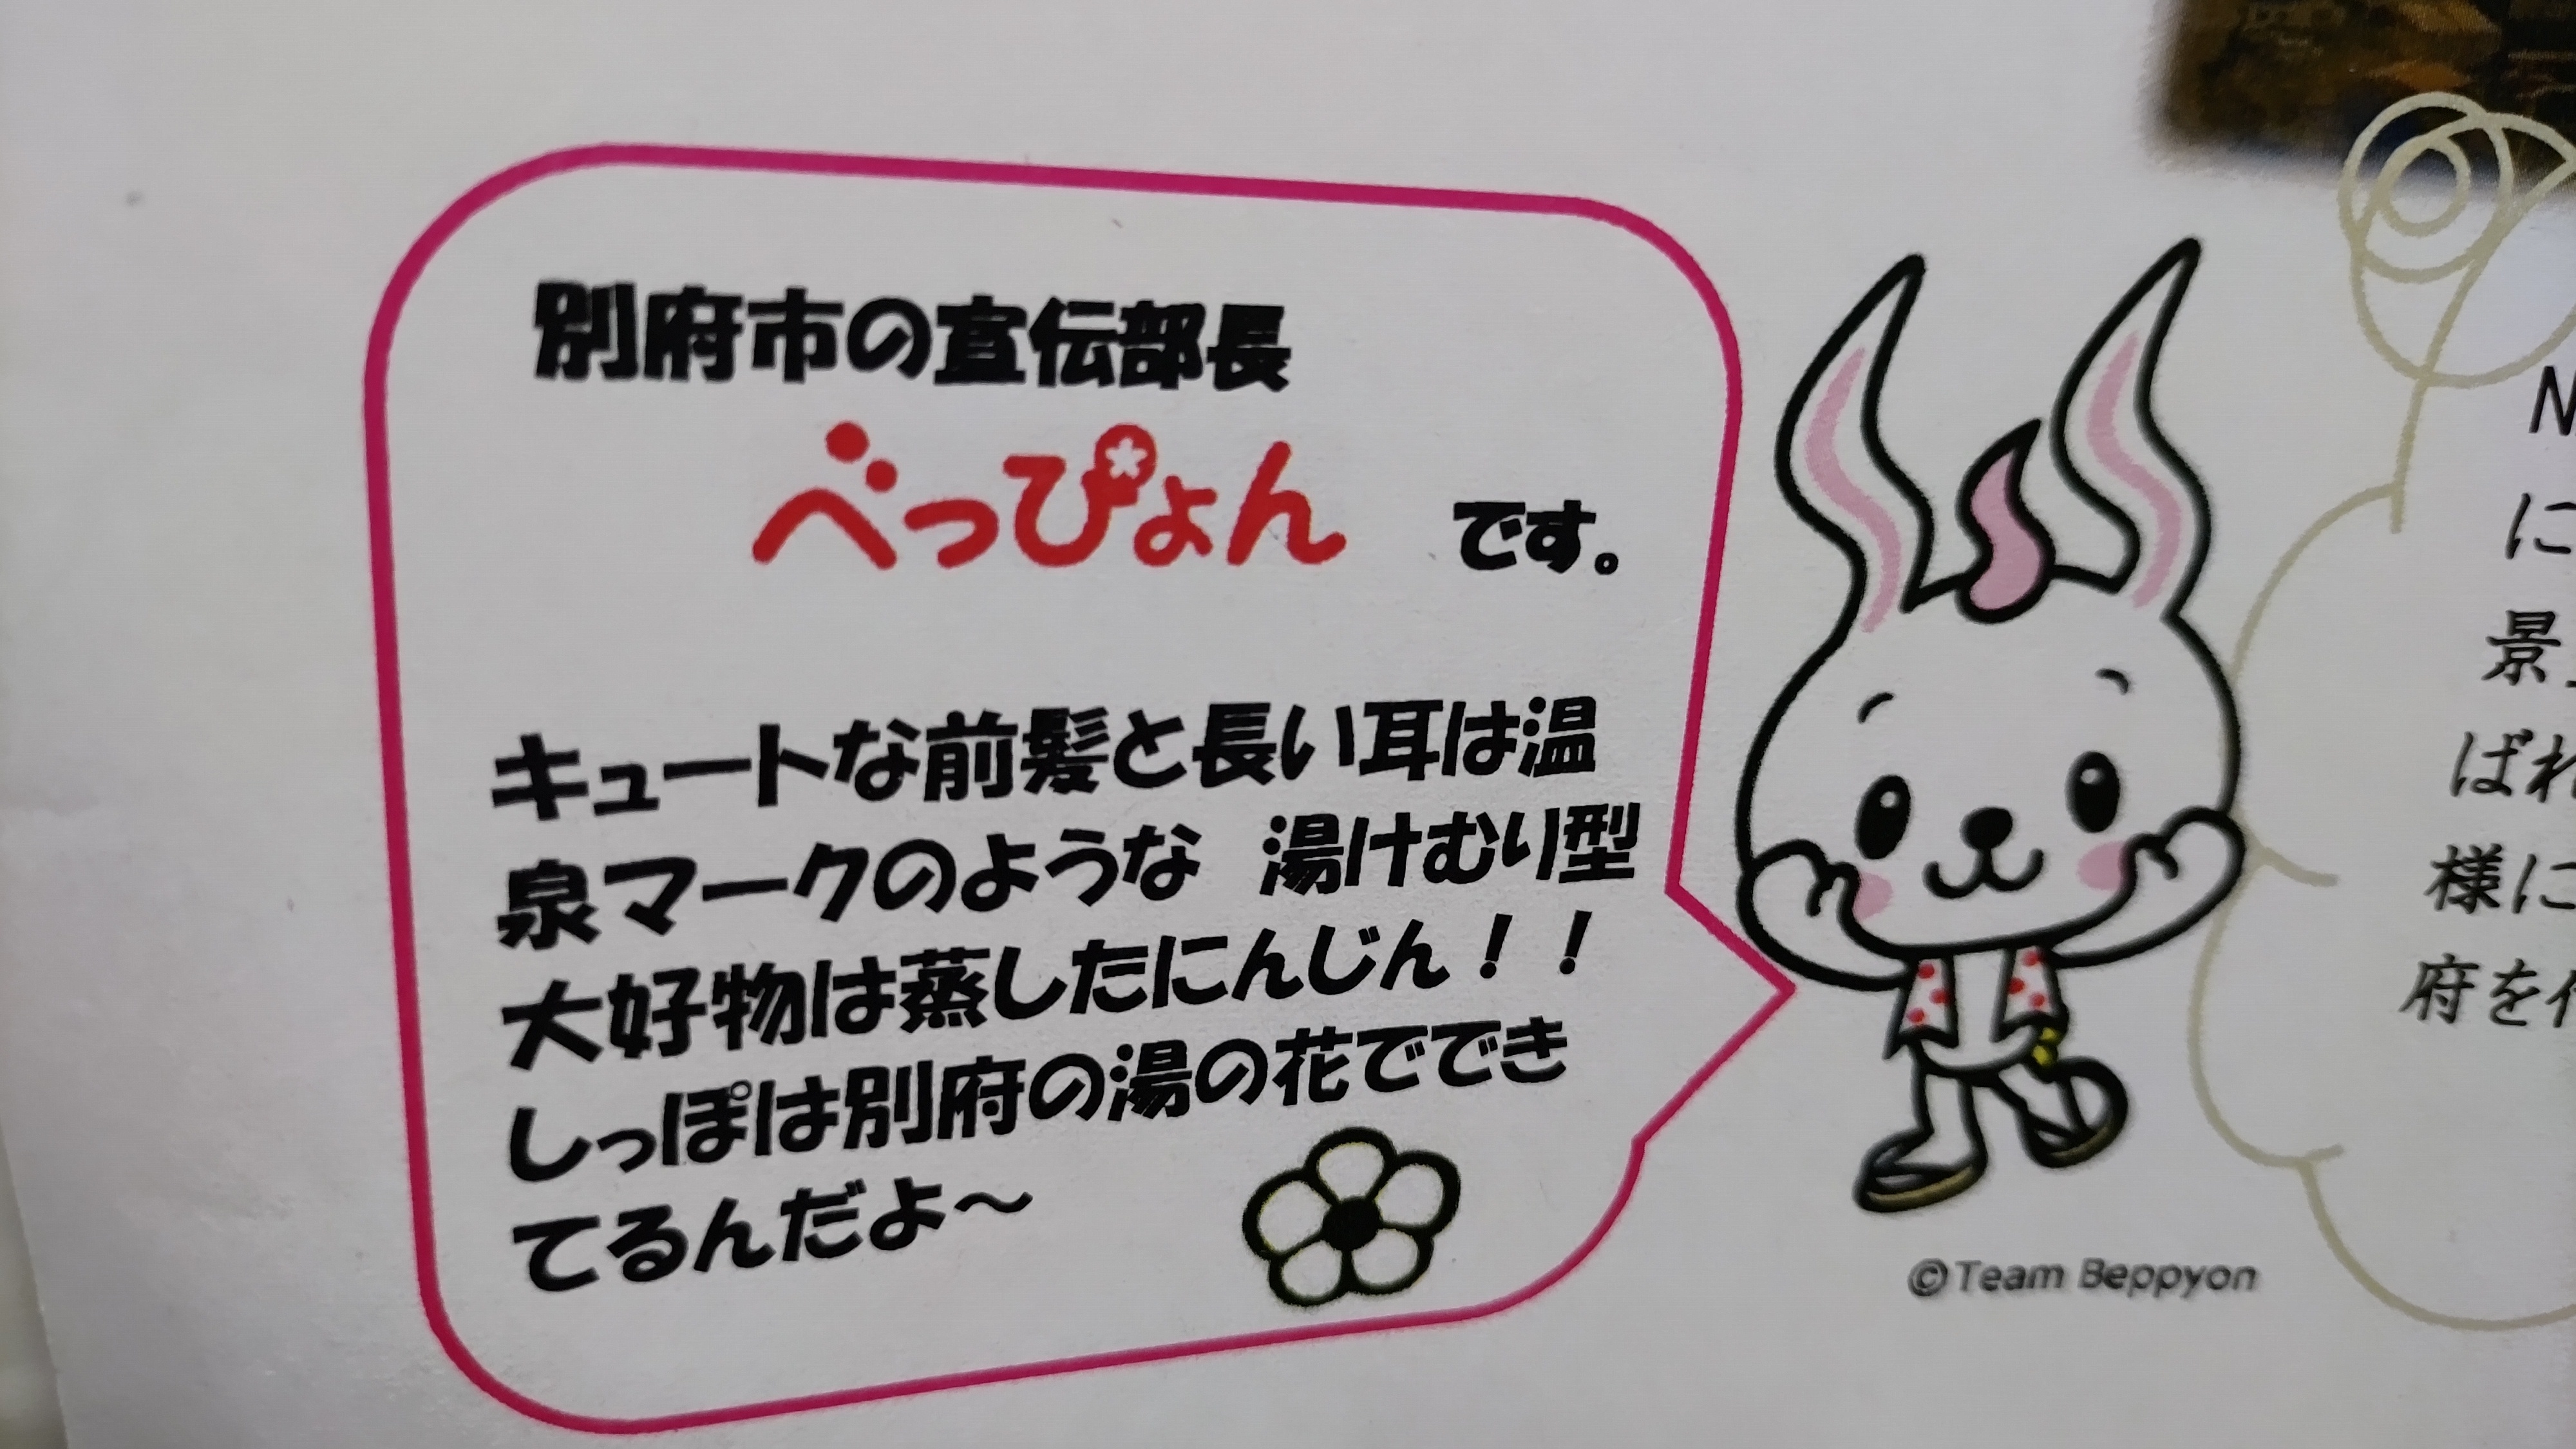 別府市の宣伝部長
べっぴょん です。
キュートな前髪と長い耳は温
泉マークのような 湯けむり型
大好物は蒸したにんじん！！
しっぽは別府の湯の花ででき
てるんだよ～
©Team Beppyon
N
に
景
ばれ
様に
府を